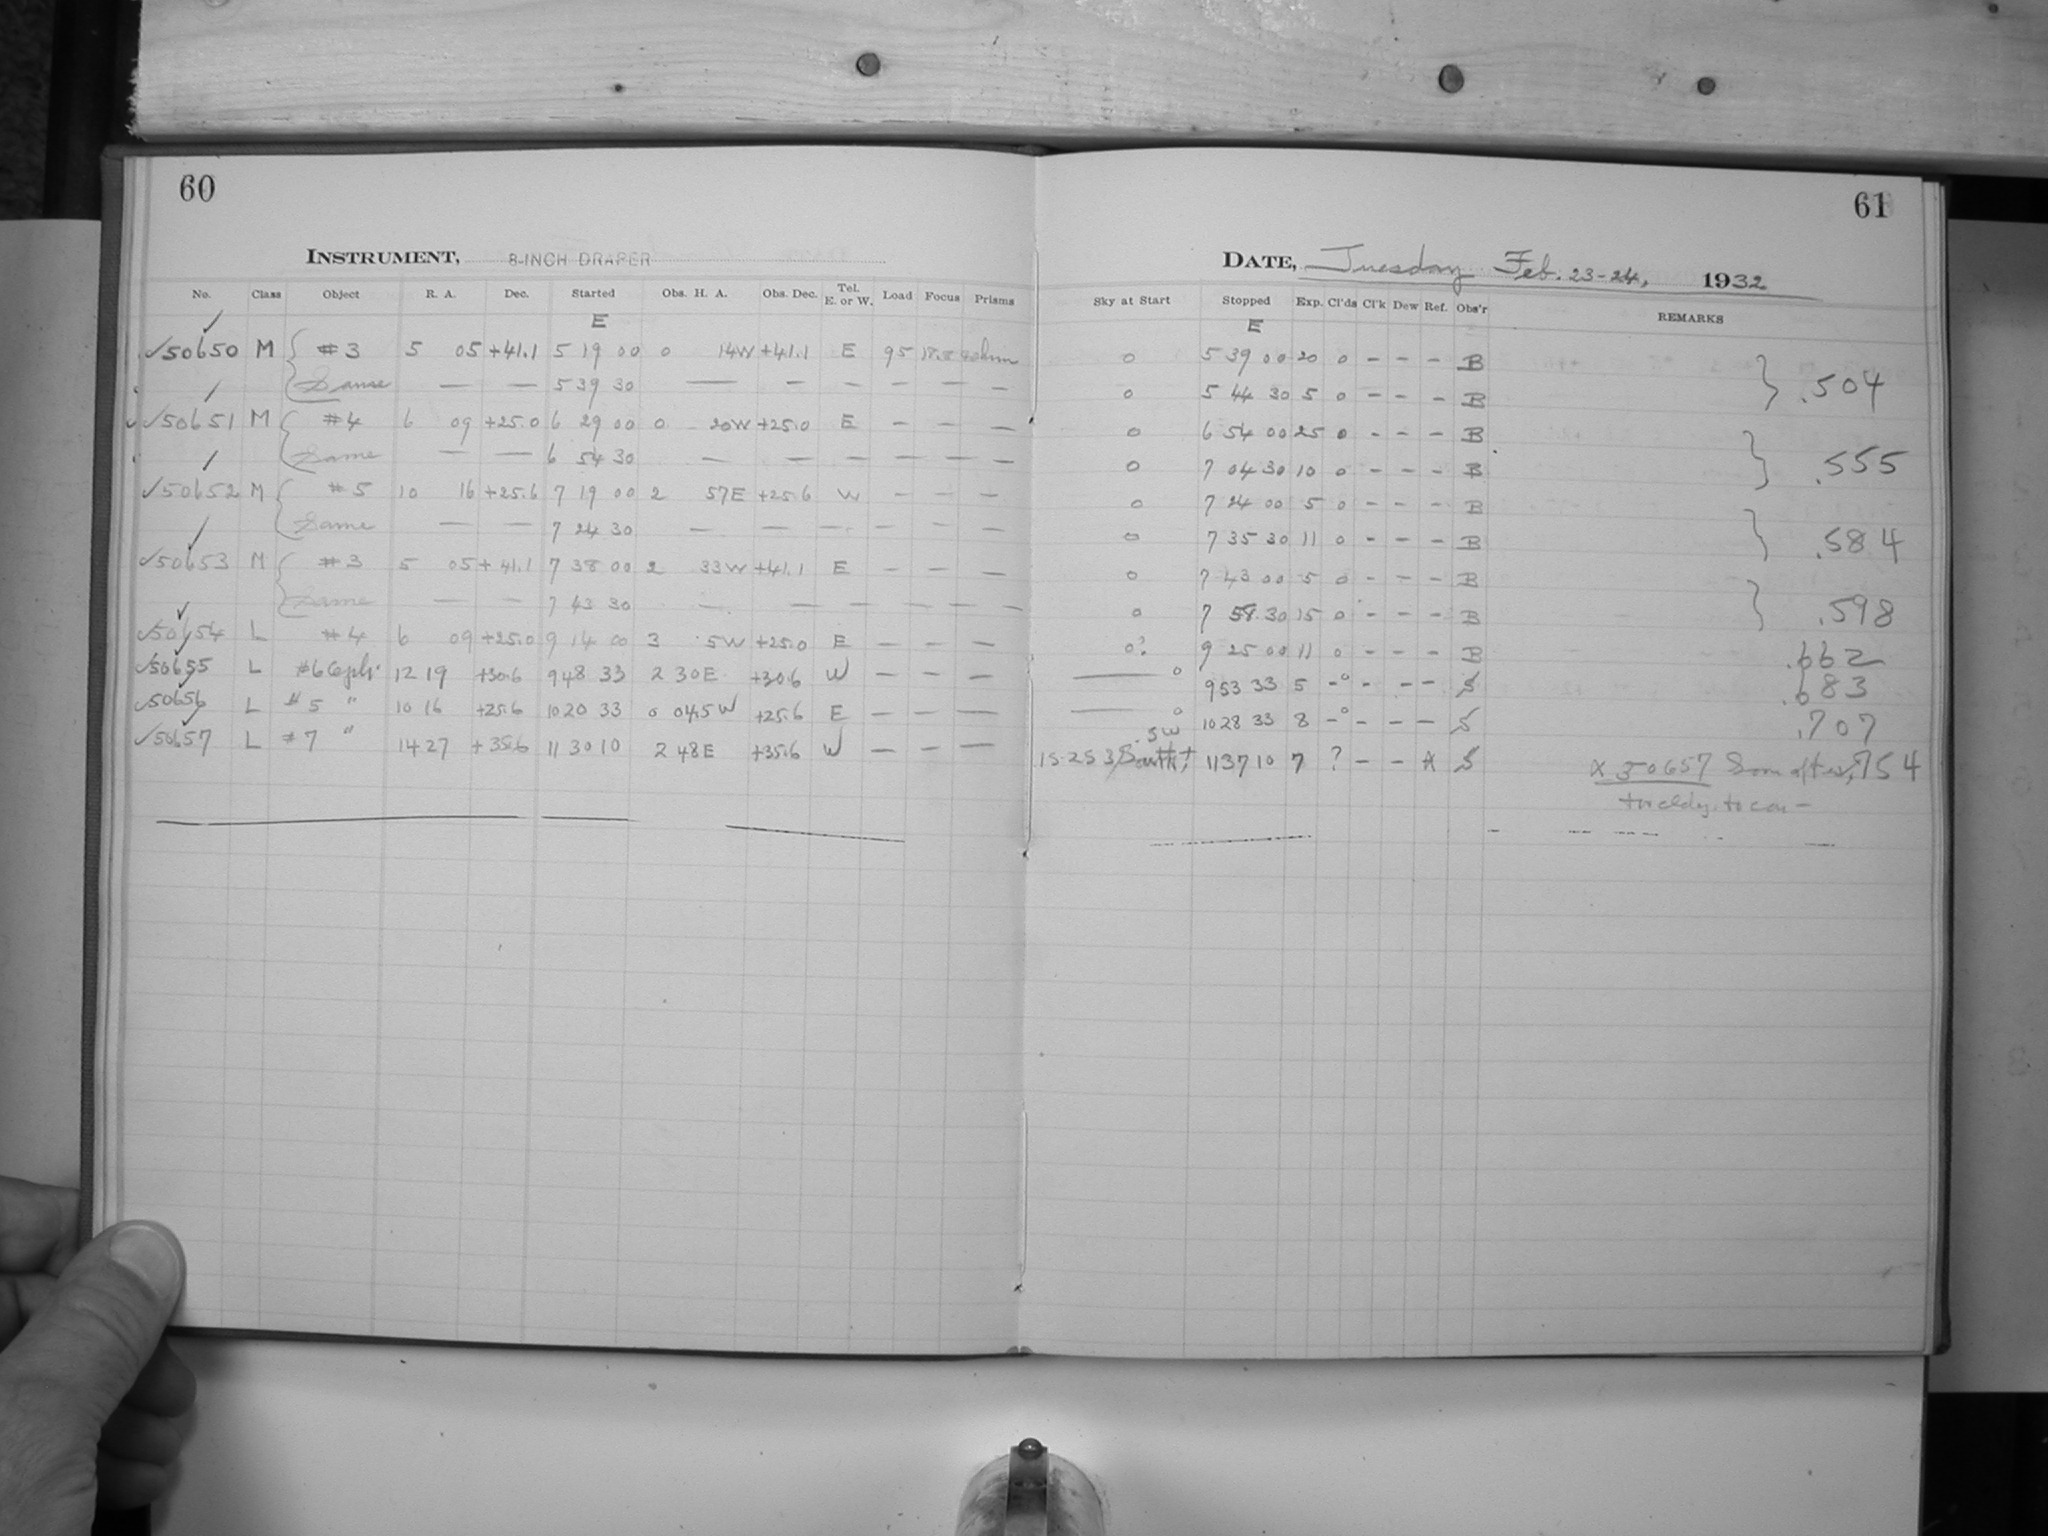 60
INSTRUMENT, 8-INCH DRAPER
No. Class Object R. A. Dec. Started Obs. H. A. Obs. Dec. Tel. E. or W. Load Focus Prisms
E
✓50650 M #3 5 05 +41.1 5 19 00 0 14W +41.1 E 95
Same — — 5 39 30 — — — — — —
✓50651 M #4 6 09 +25.0 6 29 00 0 20W +25.0 E — — —
Same — — 6 54 30 — — — — — —
✓50652 M #5 10 16 +25.6 7 19 00 2 57E +25.6 W — — —
Same — — 7 24 30 — — — — — —
✓50653 M #3 5 05 +41.1 7 38 00 2 33W +41.1 E — — —
Same — — 7 43 30 — — — — — —
✓50654 L #4 6 09 +25.0 9 14 00 3 5W +25.0 E — — —
✓50655 L #6 Ceph. 12 19 +30.6 9 48 33 2 30E +30.6 W — — —
✓50656 L #5 " 10 16 +25.6 10 20 33 0 04.5W +25.6 E — — —
✓50657 L #7 " 14 27 +35.6 11 30 10 2 48E +35.6 W — — —
61
DATE, Tuesday Feb. 23-24, 1932
Sky at Start Stopped Exp. Cl'ds Cl'k Dew Ref. Obs'r REMARKS
E
0 5 39 00 20 0 – – – B
0 5 44 30 5 0 – – – B } .504
0 6 54 00 25 0 – – – B
0 7 04 30 10 0 – – – B } .555
0 7 24 00 5 0 – – – B
0 7 35 30 11 0 – – – B } .584
0 7 43 00 5 0 – – – B
0 7 58 30 15 0 – – – B } .598
0? 9 25 00 11 0 – – – B .662
— 0 9 53 33 5 –0 – – – S .683
— 0 10 28 33 8 –0 – – – S .707
SW
11 37 10 7 ? – – * S x 50657 Soon after, .754